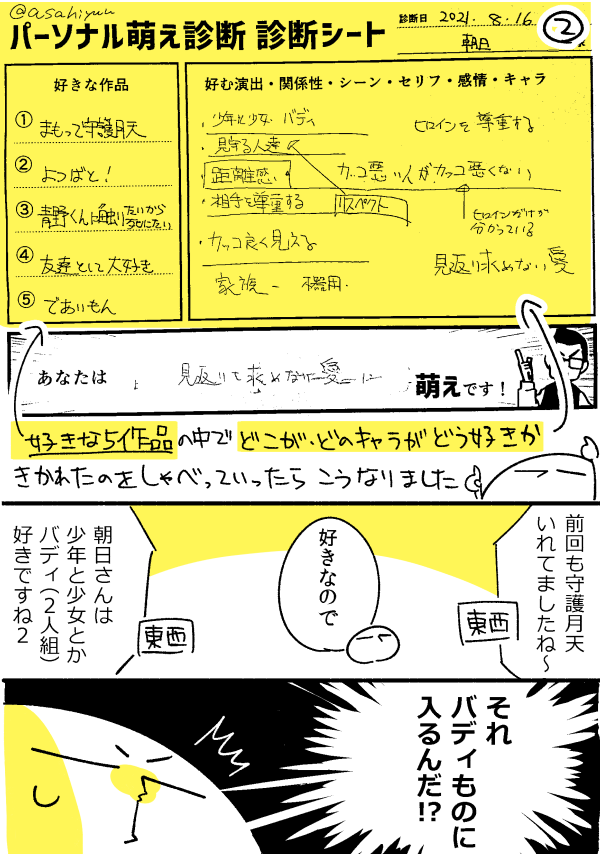 @asahiyuu
パーソナル萌え診断 診断シート
診断日 2021. 8. 16
朝日
②
好きな作品
① まもって守護月天
② よつばと!
③ 青野くんに触りたいから死にたい
④ 友達として大好き
⑤ であいもん
好む演出・関係性・シーン・セリフ・感情・キャラ
・少年と少女 バディ
・見守る人達
・距離感
・相手を尊重する
リスペクト
・カッコ良く見える
家族 不器用
ヒロインを尊重する
カッコ悪い人がカッコ悪くない
ヒロインだけが
分かっている
見返り求めない愛
あなたは
見返りを求めない愛に
萌えです!
好きな5作品の中で どこが・どのキャラが どう好きか
きかれたのをしゃべっていったら こうなりました
前回も守護月天
いれてましたね〜
東西
好きなので
朝日さんは
少年と少女とか
バディ(2人組)
好きですね2
東西
それ
バディものに
入るんだ!?